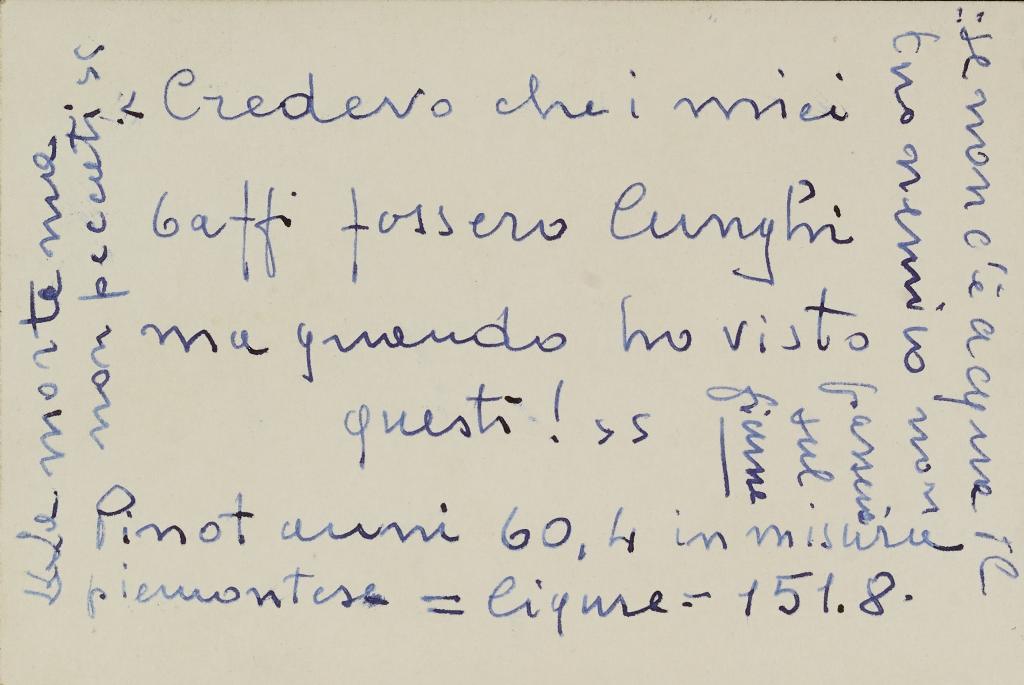 << Credevo che i miei
baffi fossero lunghi
ma quando ho visto
questi! >>
Pinot anni 60,4 in misura
piemontese = ligure = 151.8.
<<La morte ma
non peccati >>
"Se non c'è acqua il
tuo nemico non
passerà
sul
fiume